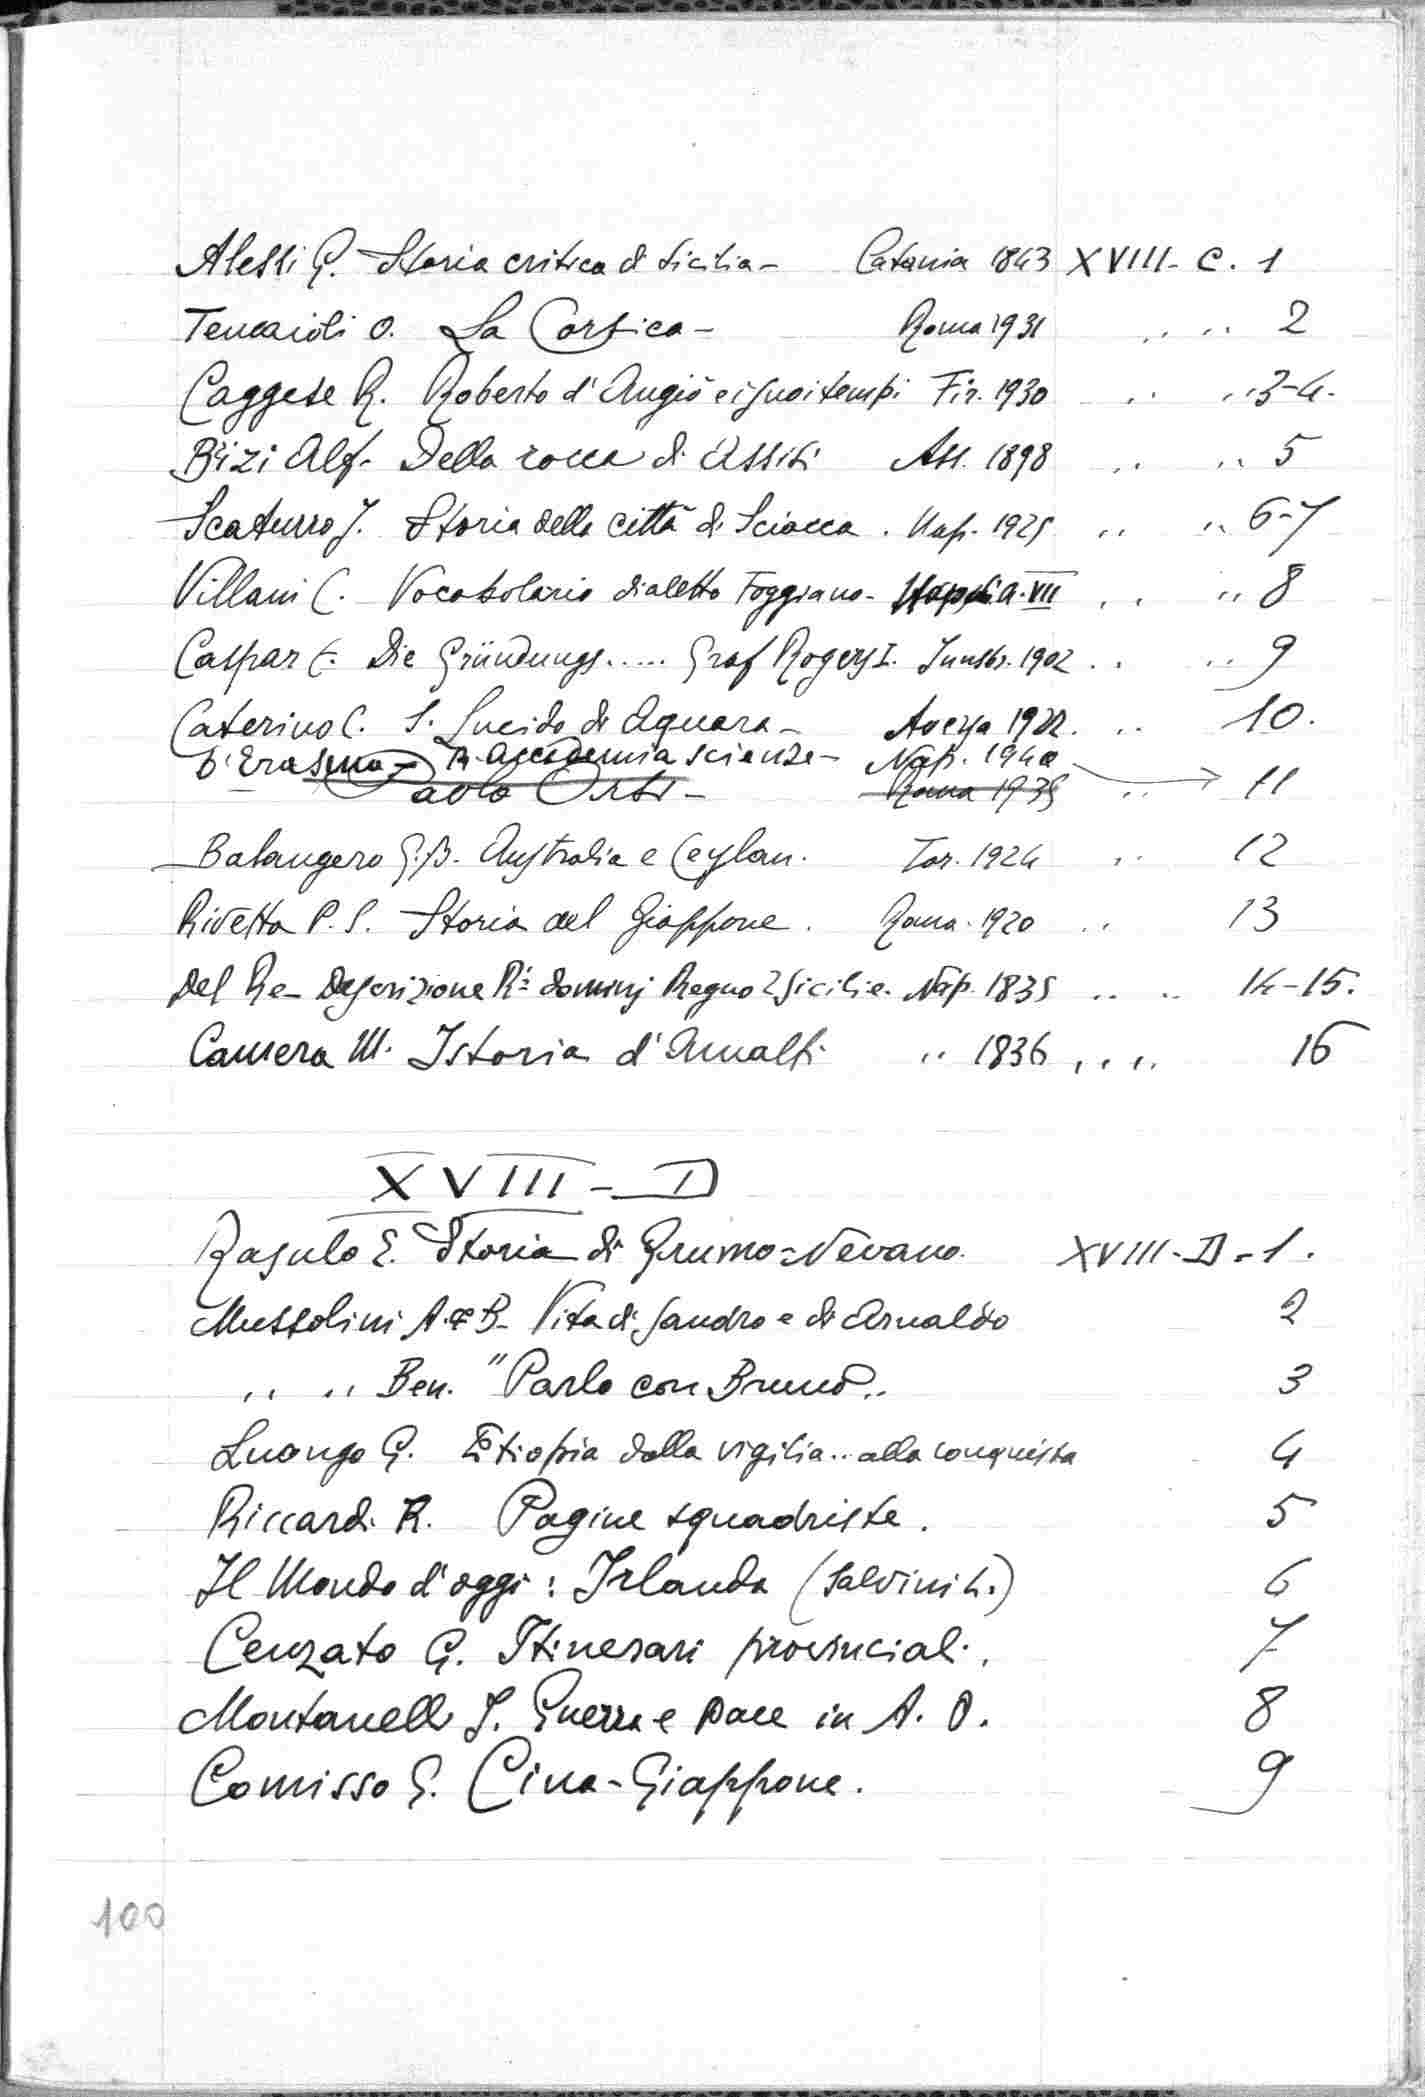 Alessi G. Storia critica di Sicilia - Catania 1843 XVIII - C. 1
Tencaioli O. La Corsica - Roma 1931 " " 2
Caggese R. Roberto d'Angiò e i suoi tempi Fir. 1930 " " 3-4.
Brizi Alf. - Della rocca di Assisi Ass. 1898 " " 5
Scaturro I. Storia della città di Sciacca. Nap. 1925 " " 6-7
Villani C. Vocabolario dialetto Foggiano - a. VII " " 8
Caspar E. Die Gründungs ..... Graf Rogers I. Innsbr. 1902 " " 9
Caterino C. S. Lucido di Aquara - Aversa 1922. " 10.
D'Erasmo - R. Accademia scienze - Nap. 1940
Paolo Orsi - Roma 1935 " 11
Balangero G.B. Australia e Ceylan. Tor. 1924 " 12
Rivetta P.S. Storia del Giappone. Roma. 1920 " 13
Del Re - Descrizione R.i domini Regno 2 Sicilie. Nap. 1835 " " 14-15.
Camera M. Istoria d'Amalfi " 1836 " " 16
XVIII - D
Rasulo E. Storia di Grumo=Nevano. XVIII - D - 1.
Mussolini A. e B - Vita di Sandro e di Arnaldo 2
" " Ben. "Parlo con Bruno" 3
Luongo G. Etiopia dalla vigilia .. alla conquista 4
Riccardi R. Pagine squadriste. 5
Il Mondo d'oggi: Irlanda (Salvini L.) 6
Cenzato G. Itinerari provinciali. 7
Montanelli I. Guerra e pace in A. O. 8
Comisso G. Cina - Giappone. 9
100